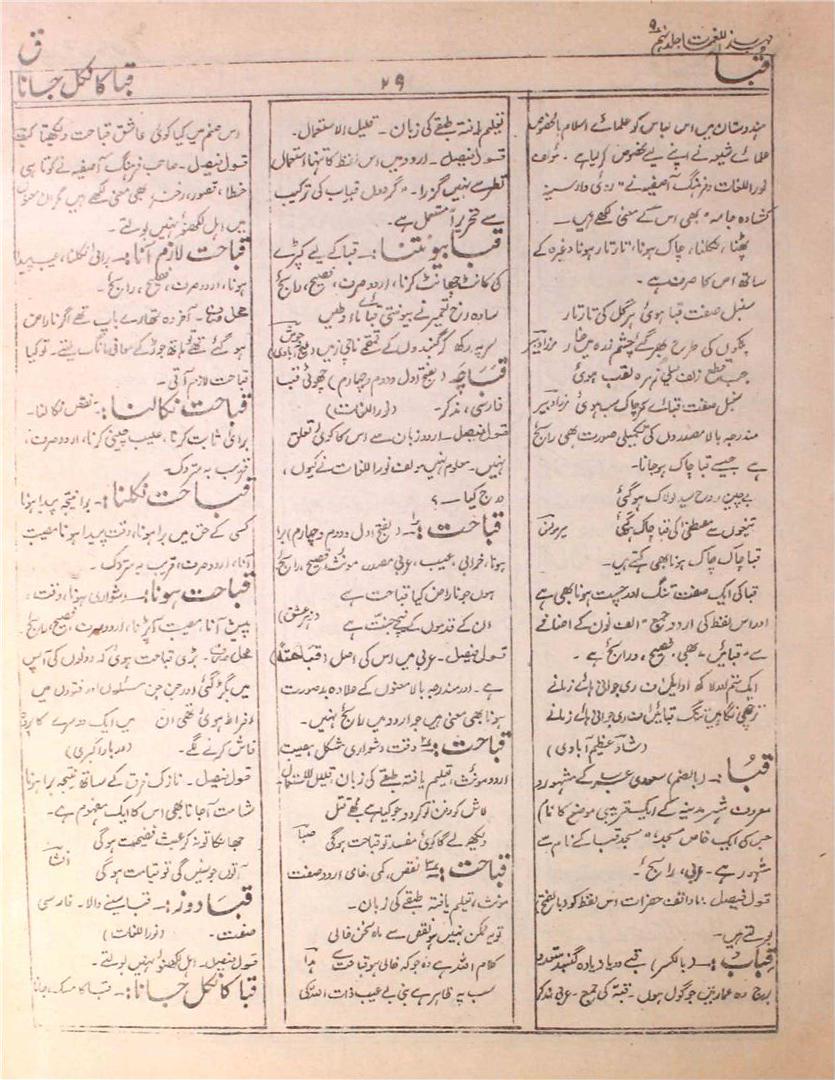 مہذب اللغات جلد نہم ۹
قبا
۲۹
قبا کا نکل جانا
ق
ہندوستان میں اس لباس کو علمائے اسلام بالخصوص
علمائے شیعہ نے اپنے لیے مخصوص کر لیا ہے۔ مؤلف
نور اللغات و فرہنگ آصفیہ نے
کشادہ جامہ" بھی اس کے معنی لکھے ہیں۔
پھٹنا، نکلنا، چاک ہونا، تار تار ہونا وغیرہ کے
ساتھ اس کا صرف ہے۔
سنبل صفت قبا ہوئی ہر گل کی تار تار
پتلیوں کی طرح پھر گئے چشم زدہ میں خار مرزا دبیر
لقب ہوئی
سنبل صفت قبائے چاک سب ہوئی مرزا دبیر
مندرجہ بالا مصدروں کی تکمیلی صورت بھی رائج
ہے جیسے قبا چاک ہو جانا۔
بے چین روح سید لولاک ہو گئی
تیغوں سے مصطفیٰ کی قبا چاک ہو گئی میر مونس
قبا چاک چاک ہونا بھی کہتے ہیں۔
قبا کی ایک صفت تنگ اور چست ہونا بھی ہے
اور اس لفظ کی اردو جمع "الف نون کے اضافے
سے "قبائیں" بھی فصیح، ورائج ہے۔
ایک ستم اور لاکھ ادائیں اف ری جوانی ہائے زمانے
ترچھی نگاہیں تنگ قبائیں اف ری جوانی ہائے زمانے
(شاد عظیم آبادی)
قُبا :۔ (بالضم) سعودی عرب کے مشہور و
معروف شہر مدینہ کے ایک قریبی موضع کا نام
جس کی ایک خاص مسجد "مسجد قبا کے نام سے
مشہور ہے۔ عربی، رائج۔
قول فیصل۔ ناواقف حضرات اس لفظ کو (بالفتح)
بولتے ہیں۔
قِباب :۔ (بالکسر) قبے دو یا زیادہ گنبد متعدد
برج وہ عمارتیں جو گول ہوں۔ قبۃ کی جمع۔ عربی مذکر
تعلیم یافتہ طبقے کی زبان۔ قلیل الاستعمال۔
قول فیصل۔ اردو میں اس لفظ کا تنہا استعمال
نظر سے نہیں گزرا۔ "گردوں قباب کی ترکیب
سے تحریراً مستعمل ہے۔
قبا بیونتنا :۔ قبا کے لیے کپڑے
کی کانٹ چھانٹ کرنا، اردو صرف، فصیح، رائج
سادہ رخ تعمیر نے بیونتی قبائے
سر پہ رکھ کر گنبدوں کے قمقمے ناچی زمیں (جوش ملیح آبادی)
قَبَاچَہ (بفتح اول و دوم و چہارم) چھوٹی قبا
فارسی، مذکر۔ (نور اللغات)
قول فیصل۔ اردو زبان سے اس کا کوئی تعلق
نہیں۔ معلوم نہیں مولف نور اللغات نے کیوں،
درج کیا۔ ؟
قباحت :۱۔ (بفتح اول و دوم و چہارم) برا
ہونا، خرابی، عیب، عربی مصدر، مونث، فصیح، رائج
ہوں جو ناراض کیا قباحت ہے
ان کے قدموں کے نیچے جنت ہے (زہر عشق)
قول فیصل۔ عربی میں اس کی اصل (قباحۃ)
ہے۔ اور مندرجہ بالا معنوں کے علاوہ بدصورت
ہونا بھی معنی ہیں جو اردو میں رائج نہیں۔
قباحت :۲۔ دقت دشواری مشکل
اردو مونث، تعلیم یافتہ طبقے کی زبان قلیل الاستعمال
لاش کو دفن تو کر دو جو کیا ہے مجھے قتل
دیکھ لے گا کوئی مفسد تو قباحت ہوگی صبا
قباحت :۳۔ نقص، کمی، خامی اردو صفت
مونث، تعلیم یافتہ طبقے کی زبان۔
تو یہ لیکن نہیں ہو نقص سے ماہ سخن خالی
کلام اللہ ہے وہ جو کہ خالی ہو قباحت سے
سب پہ ظاہر ہے بنی بے عیب ذات اللہ کی
اس صنم میں کیا کوئی عاشق قباحت دیکھتا
قول فیصل۔ صاحب فرہنگ آصفیہ نے کوتاہی
خطا، تصور، رخنہ بھی معنی لکھے ہیں مگر ان معنوں
میں اہل لکھنؤ نہیں بولتے۔
قباحت لازم آنا :۔ برائی نکلنا، عیب پیدا
ہونا، اردو صرف، فصیح، رائج۔
محل صرف۔ آخر وہ تمہارے باپ تھے اگر ناراض
ہو گئے تھے ہاتھ جوڑ کے معافی مانگ لیتے۔ تو کیا
قباحت لازم آتی۔
قباحت نکالنا :۔ نقص نکالنا۔
برائی ثابت کرنا، عیب چینی کرنا، اردو صرف،
قریب بہ متروک۔
قباحت نکلنا :۔ برا نتیجہ پیدا ہونا
کسی کے حق میں برا ہونا، دقت پیدا ہونا مصیبت
آنا، اردو صرف، قریب بہ متروک۔
قباحت ہونا :۔ دشواری ہونا، دقت،
پیش آنا، مصیبت آ پڑنا، اردو صرف، فصیح، رائج۔
محل صرف۔ بڑی قباحت ہوئی کہ دونوں کی آپس
میں بگڑ گئی اور جن جن مسئلوں اور فتووں میں
افراط ہوئی تھی ان میں ایک دوسرے کا پردہ
فاش کرنے لگے۔ (دربار اکبری)
قول فیصل۔ نازک فرق کے ساتھ نتیجہ برا ہونا
شامت آ جانا بھی اس کا ایک مفہوم ہے۔
جھانکا تو نہ کر عبث فضیحت ہوگی
آتوں جو سنیں گی تو قیامت ہوگی انشا
قبا دوز :۔ قبا سینے والا۔ فارسی
صفت۔ (نور اللغات)
قول فیصل۔ اہل لکھنؤ نہیں بولتے۔
قبا کا نکل جانا :۔ قبا کا مسک جانا